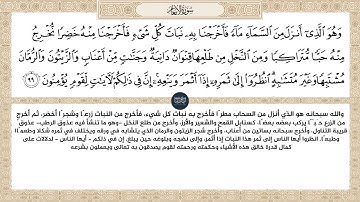 سورة الأنعام
وَهُوَ الَّذِي أَنزَلَ مِنَ السَّمَاءِ مَاءً فَأَخْرَجْنَا بِهِ نَبَاتَ كُلِّ شَيْءٍ فَأَخْرَجْنَا مِنْهُ خَضِرًا نُّخْرِجُ
مِنْهُ حَبًّا مُّتَرَاكِبًا وَمِنَ النَّخْلِ مِن طَلْعِهَا قِنْوَانٌ دَانِيَةٌ وَجَنَّاتٍ مِّنْ أَعْنَابٍ وَالزَّيْتُونَ وَالرُّمَّانَ
مُشْتَبِهًا وَغَيْرَ مُتَشَابِهٍ انظُرُوا إِلَى ثَمَرِهِ إِذَا أَثْمَرَ وَيَنْعِهِ إِنَّ فِي ذَٰلِكُمْ لَآيَاتٍ لِّقَوْمٍ يُؤْمِنُونَ ٩٩
والله سبحانه هو الذي أنزل من السحاب مطرًا فأخرج به نبات كل شيء، فأخرج من النبات زرعًا وشجرًا أخضر، ثم أخرج
من الزرع حَبًّا يركب بعضه بعضًا، كسنابل القمح والشعير والأرز، وأخرج من طلع النخل -وهو ما تنشأ فيه عذوق الرطب- عذوقًا
قريبة التناول، وأخرج سبحانه بساتين من أعناب، وأخرج شجر الزيتون والرمان الذي يتشابه في ورقه ويختلف في ثمره شكلا وطعمًا
وطبعًا. انظروا أيها الناس إلى ثمر هذا النبات إذا أثمر، وإلى نضجه وبلوغه حين يبلغ. إن في ذلكم - أيها الناس - لدلالات على
كمال قدرة خالق هذه الأشياء وحكمته ورحمته لقوم يصدقون به تعالى ويعملون بشرعه